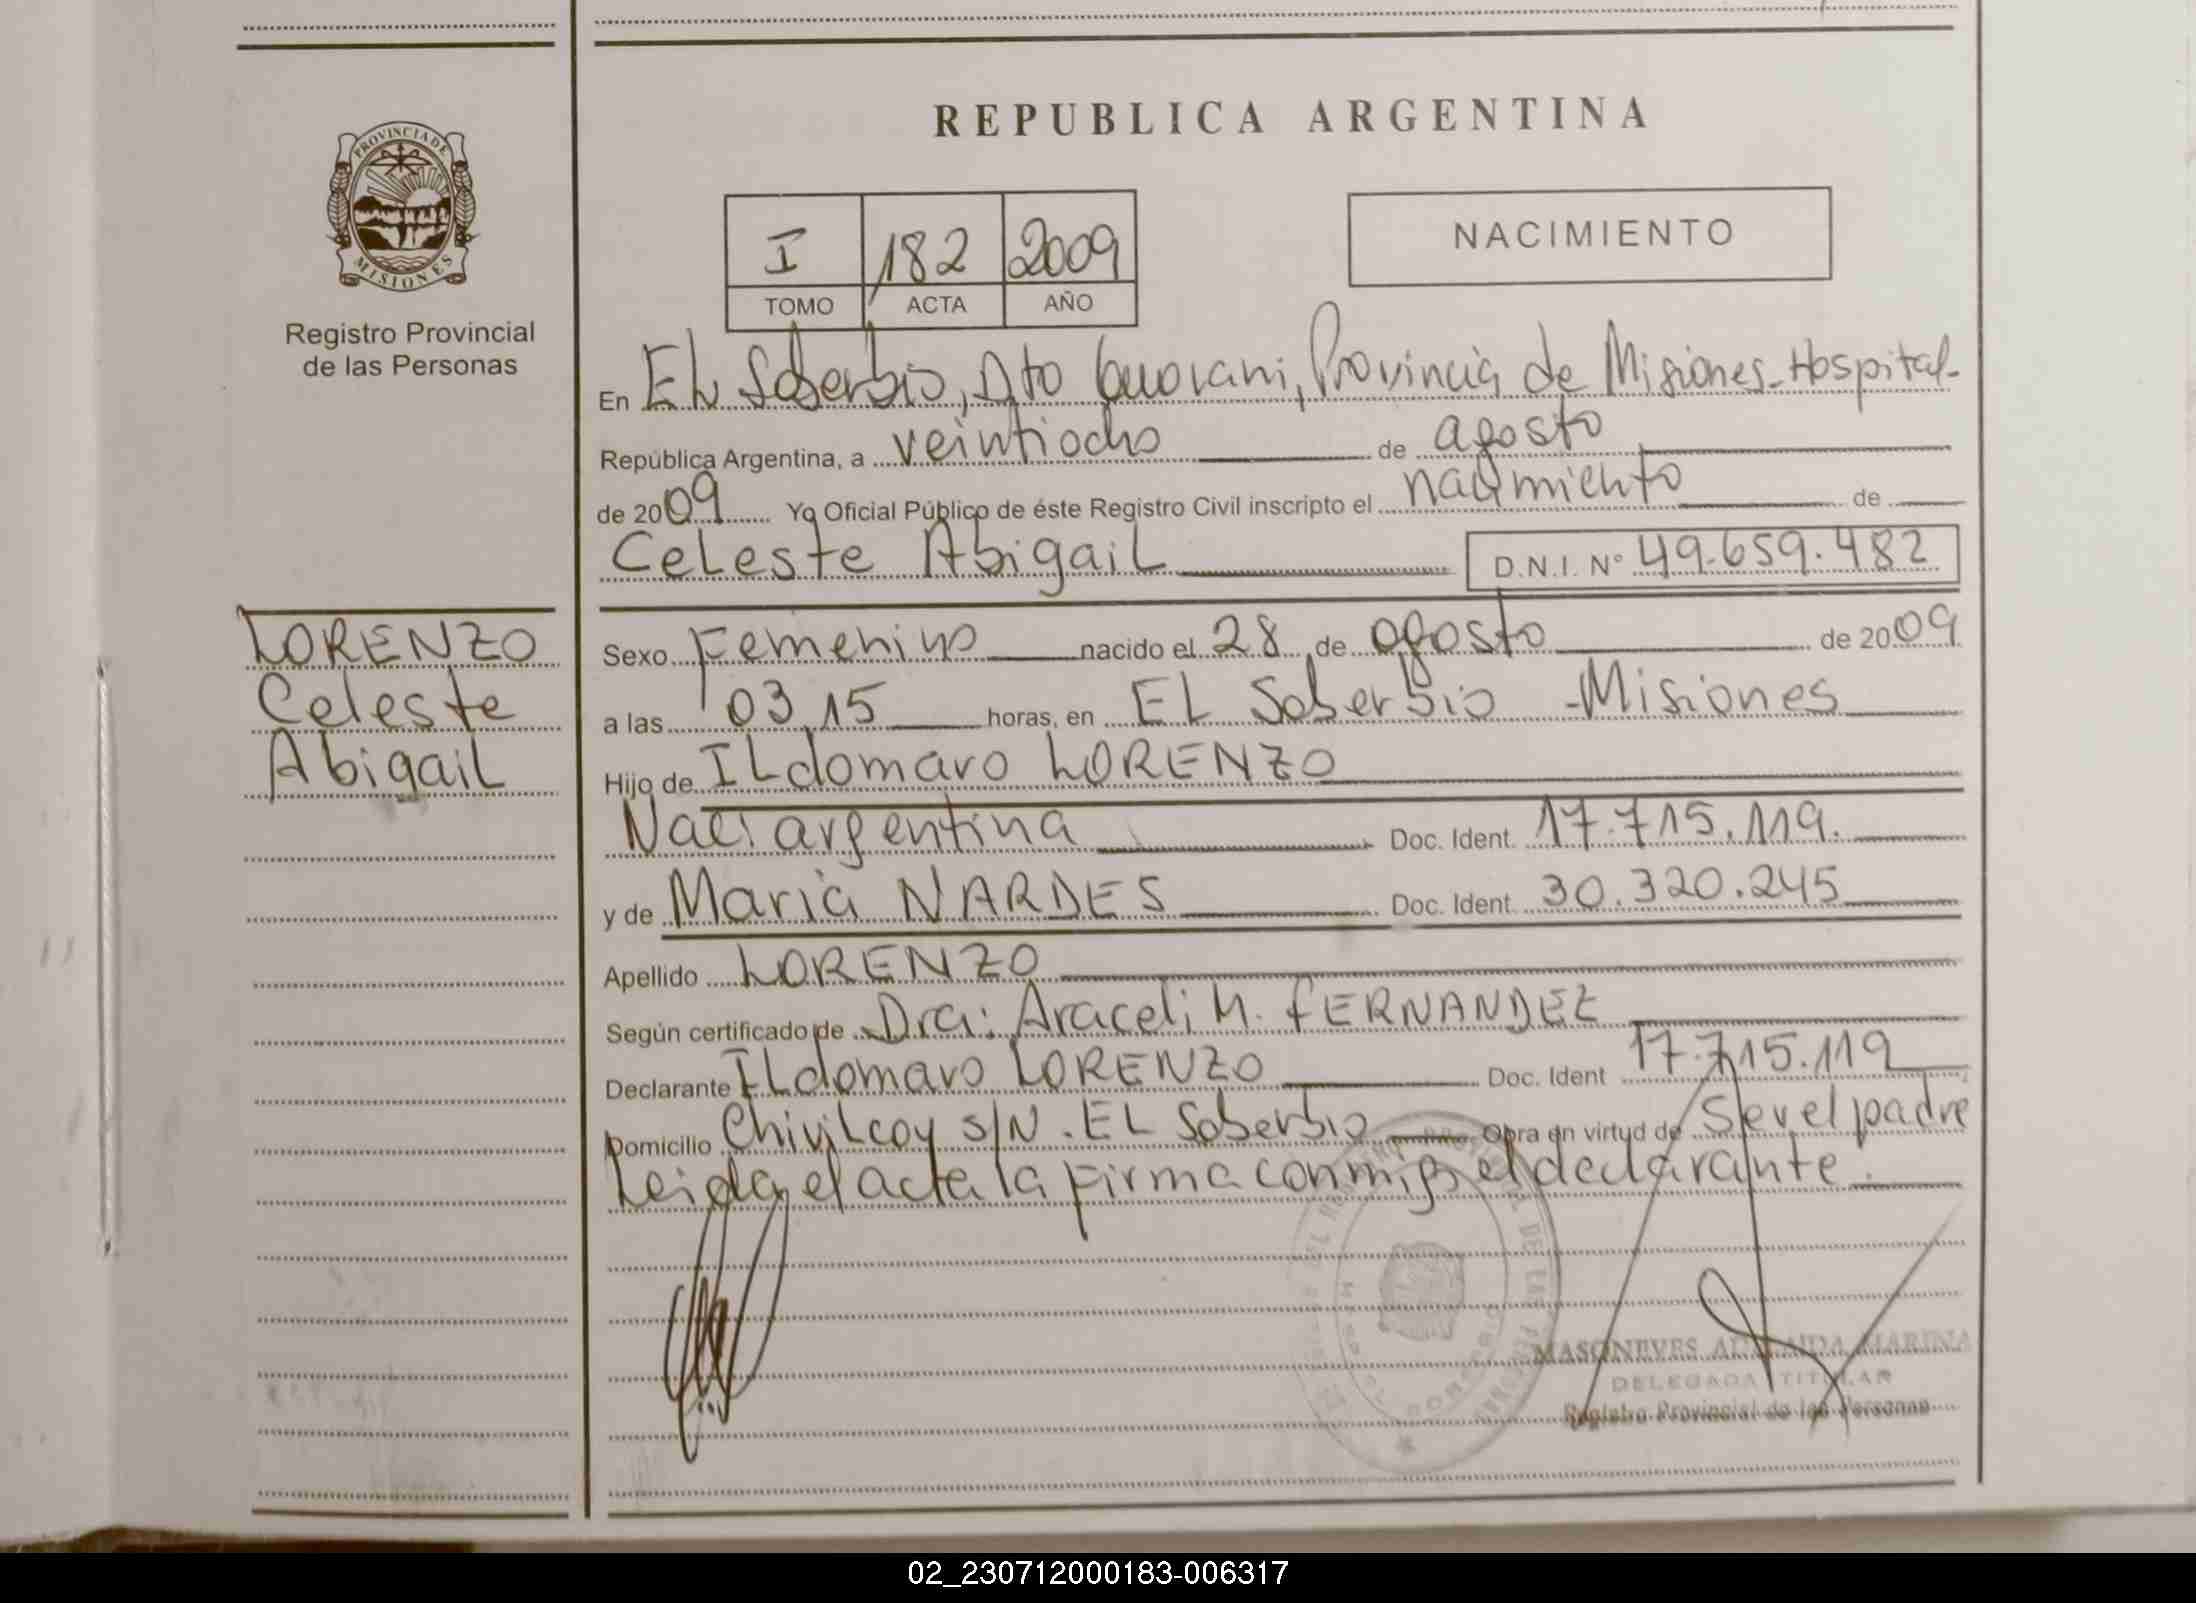 PROVINCIA DE
MISIONES
Registro Provincial
de las Personas
LORENZO
Celeste
Abigail
REPUBLICA ARGENTINA
I 182 2009
TOMO ACTA AÑO
NACIMIENTO
En El Soberbio, Dto Guarani, Provincia de Misiones-Hospital-
República Argentina, a veintiocho de agosto
de 2009 Yo Oficial Público de éste Registro Civil inscripto el nacimiento de
Celeste Abigail D.N.I. Nº 49.659.482
Sexo Femenino nacido el 28 de agosto de 2009
a las 03,15 horas, en EL Soberbio -Misiones
Hijo de ILdomaro LORENZO
Naci argentina Doc. Ident. 17.715.119.
y de Maria NARDES Doc. Ident. 30.320.245
Apellido LORENZO
Según certificado de Dra: Araceli M. FERNANDEZ
Declarante ILdomaro LORENZO Doc. Ident 17.715.119
Domicilio Chivilcoy S/N. EL Soberbio Obra en virtud de Ser el padre
Leida el acta la firma conmigo el declarante.
MASONEVES MARINA
DELEGADA TITULAR
Registro Provincial de las Personas
02_230712000183-006317